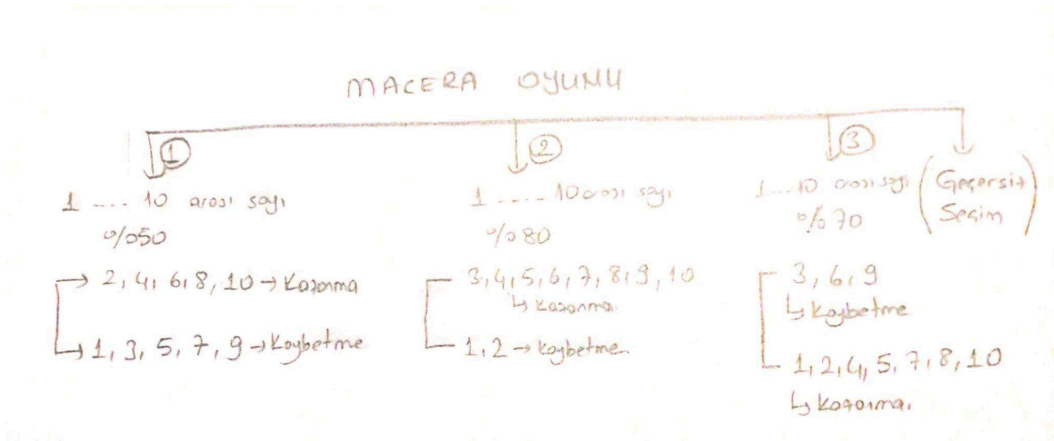 MACERA OYUNU
1
1 .... 10 arası sayı
%50
2, 4, 6, 8, 10 → Kazanma
1, 3, 5, 7, 9 → Kaybetme
2
1 ..... 10 arası sayı
%80
3, 4, 5, 6, 7, 8, 9, 10
↳ Kazanma.
1, 2 → Kaybetme.
3
1 ... 10 arası sayı
%70
3, 6, 9
↳ Kaybetme
1, 2, 4, 5, 7, 8, 10
↳ Kazanma.
(Geçersiz
Seçim)